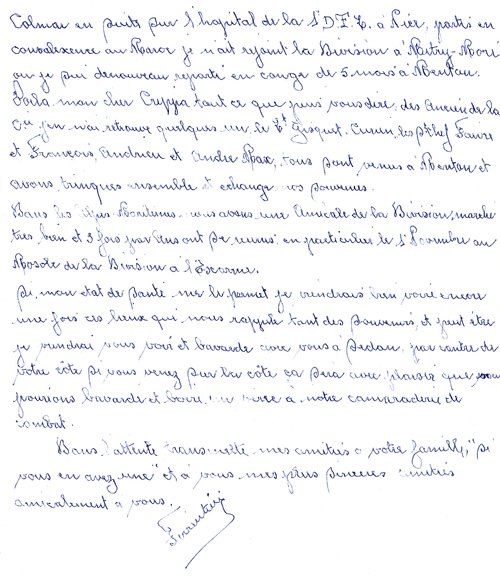 Colmar en suite sur l'hopital de la 1° D.F.L. à Lure, partis en
convalexence au Maroc je n'ait rejoint la Division à Mitry-More
ou je sui denouveau reparti en conge de 5 mois à Menton.
Voilà mon cher Creppa tout ce que puis vous dire, des Ancien de la
Cie j'en n'ai retrouve quelques un le Lt Gisquet, les Pt Chef Favre
et François, Andrieu et Andre Max, tous sont venus a Menton et
avons trinques ensemble et echange nos souvenirs.
Dans les Alpes Maritimes nous avons une Amicale de la Division, marche
très bien et 3 fois par ans ont se reunis en particulier le 1° Novembre au
Mosole de la Division a l'Escarene.
Si mon etat de santé me le permet je viendrais bien voir encore
une fois ces lieux qui nous rappelle tant des souvenirs, et peut être
je viendrai vous voir et bavarde avec vous a Sedan, par contre de
votre côte si vous venez sur la côte ça sera avec plaisir que nous
pourions bavarde et boire un verre a notre camaraderie de
combat.
Dans l'attente transmette mes amitiés a votre famille, "si
vous en avez une" et a vous mes plus sinceres amitiés
amicalement a vous.